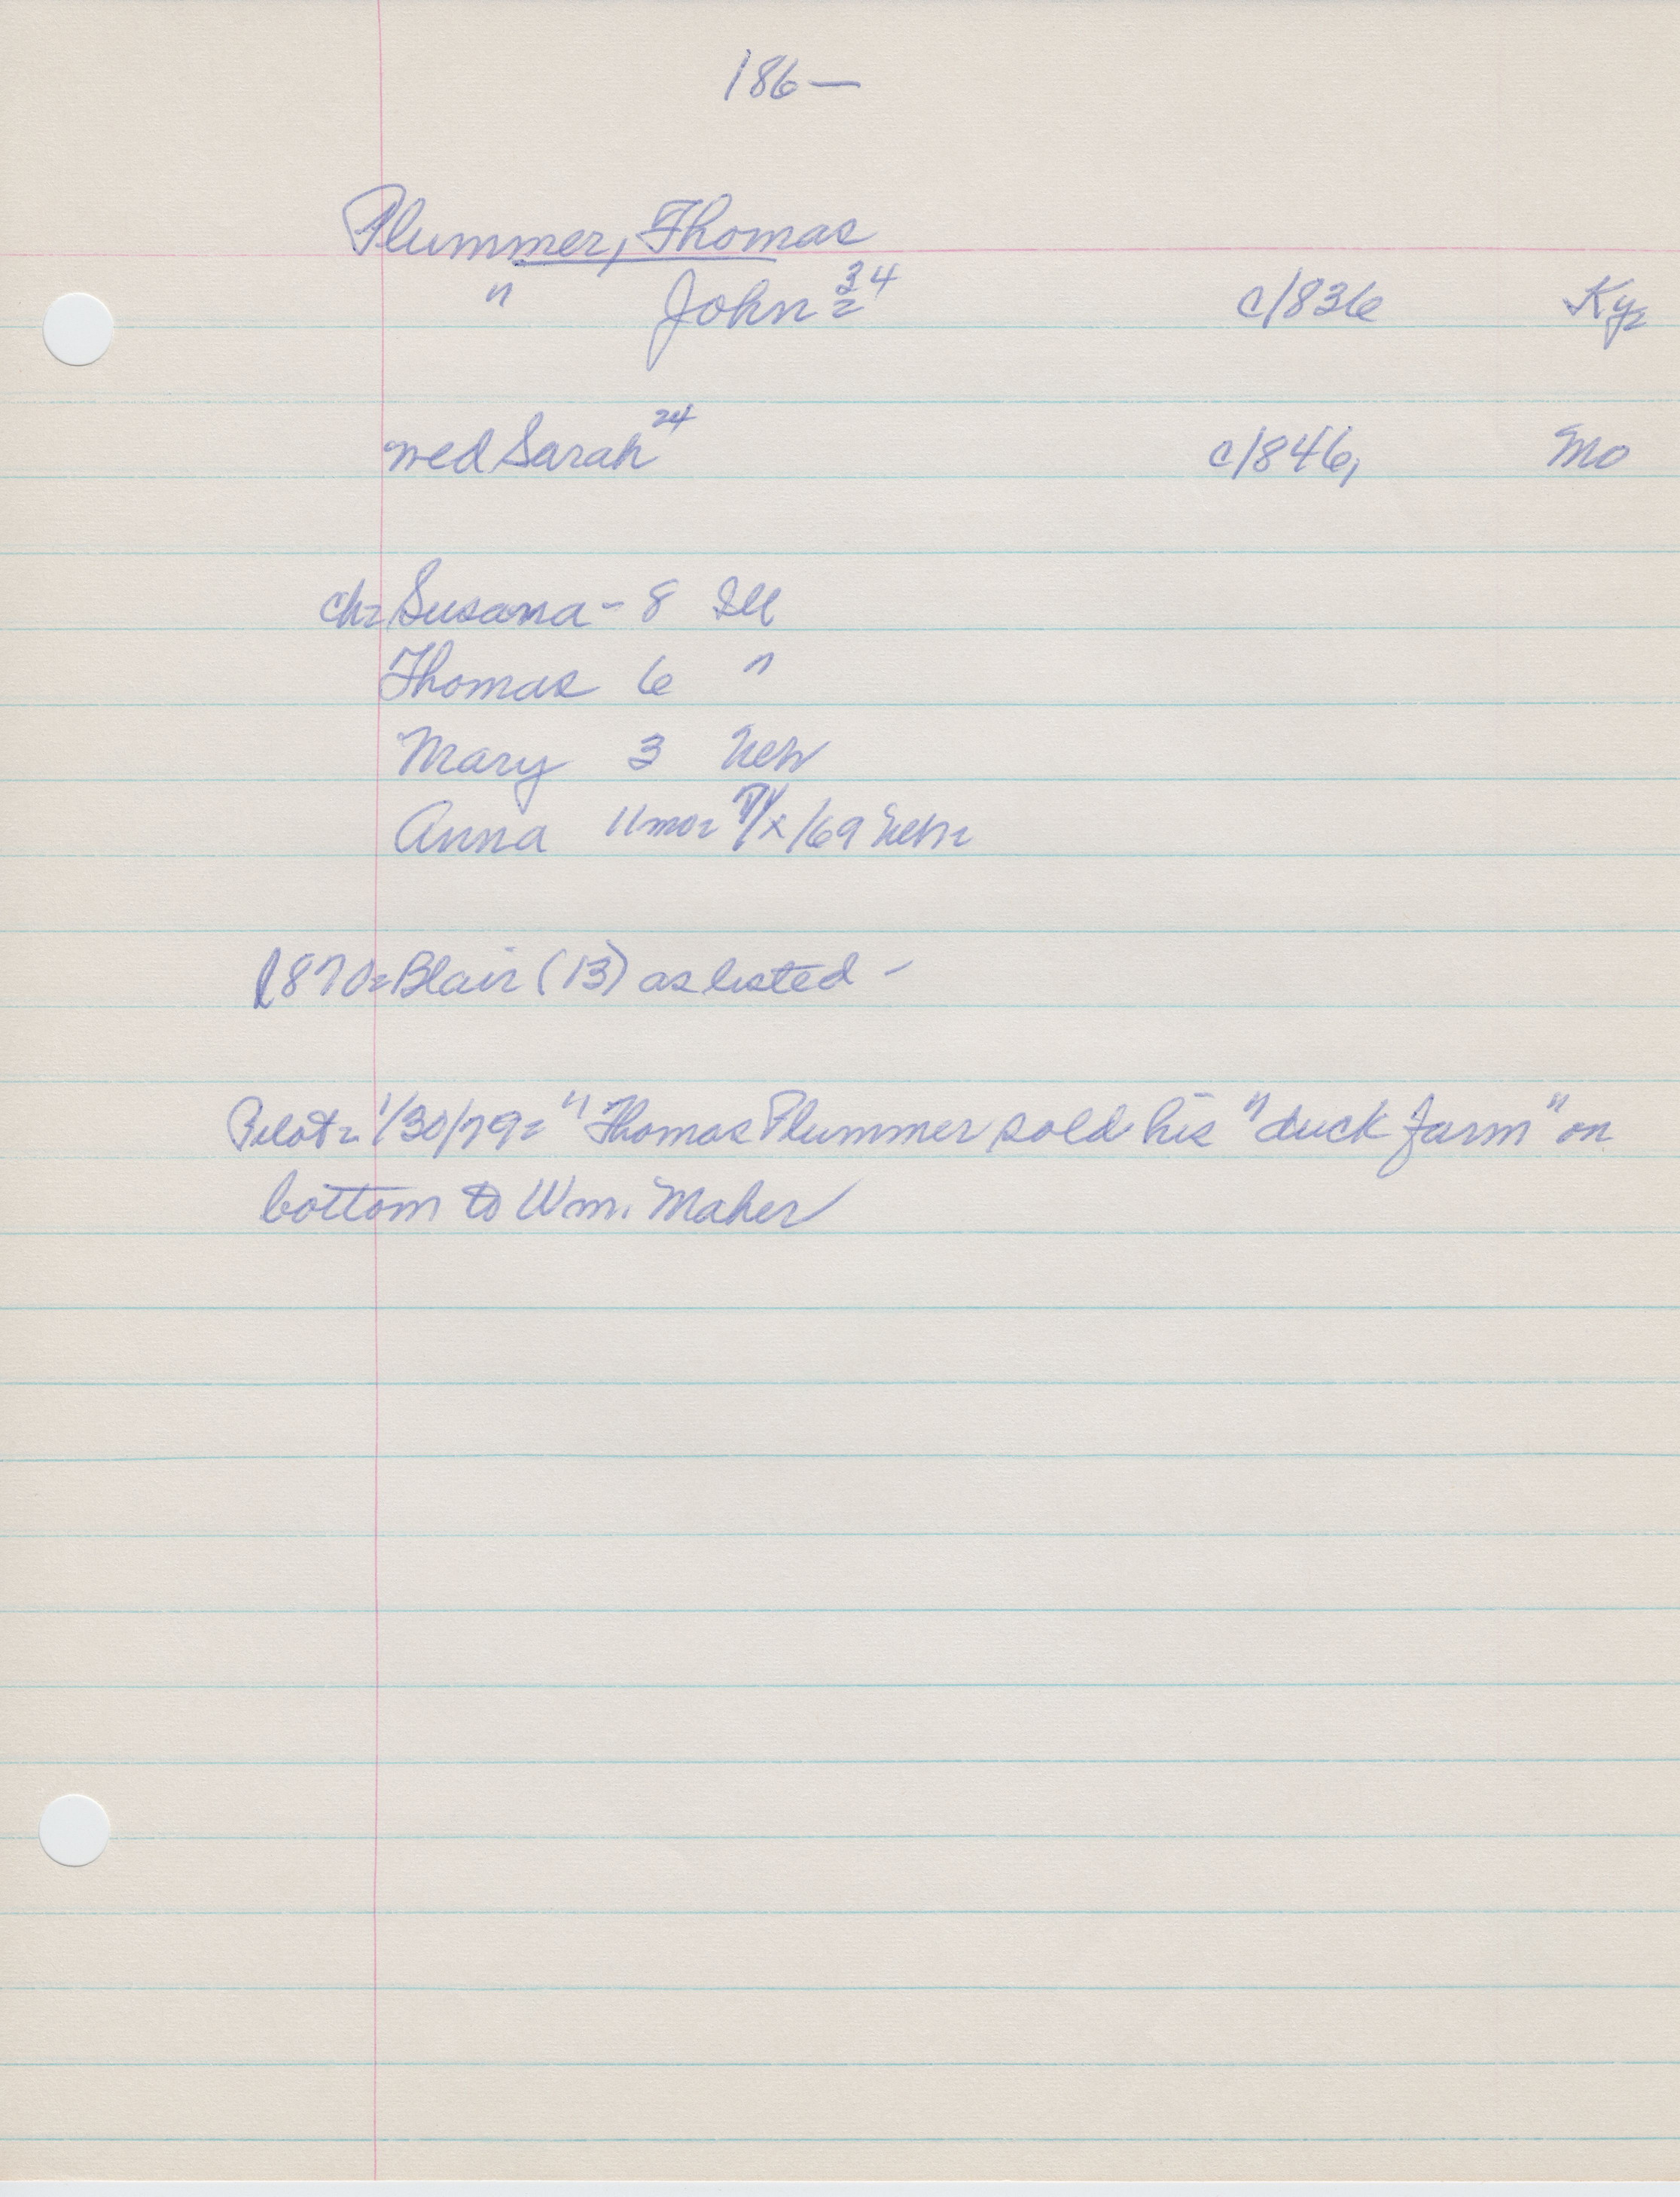 186—
Plummer, Thomas
" John = 34 c1836 Ky=
wed Sarah 24 c1846, Mo
ch= Susana - 8 Ill
Thomas 6 "
Mary 3 Neb
Anna 11mo= /69 Neb=
1870= Blair (13) as listed -
Pilot= 1/30/79= " Thomas Plummer sold his "duck farm" on
bottom to Wm. Maher